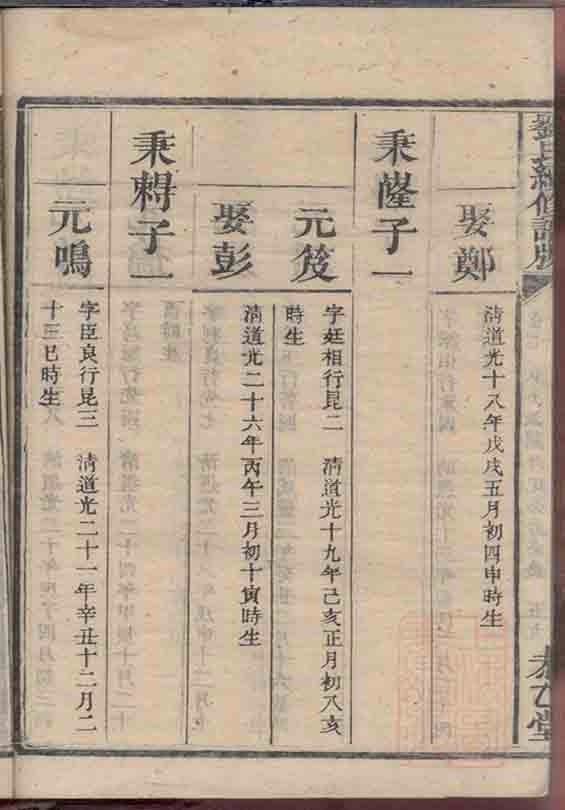 劉氏續修譜牒
本仁堂
娶鄭
清道光十八年戊戌五月初四申時生
秉隆子一
元笈
字廷相行昆二 清道光十九年己亥正月初八亥
時生
娶彭
清道光二十六年丙午三月初十寅時生
子一
元鳴
字臣良行昆三 清道光二十一年辛丑十二月二
十三巳時生